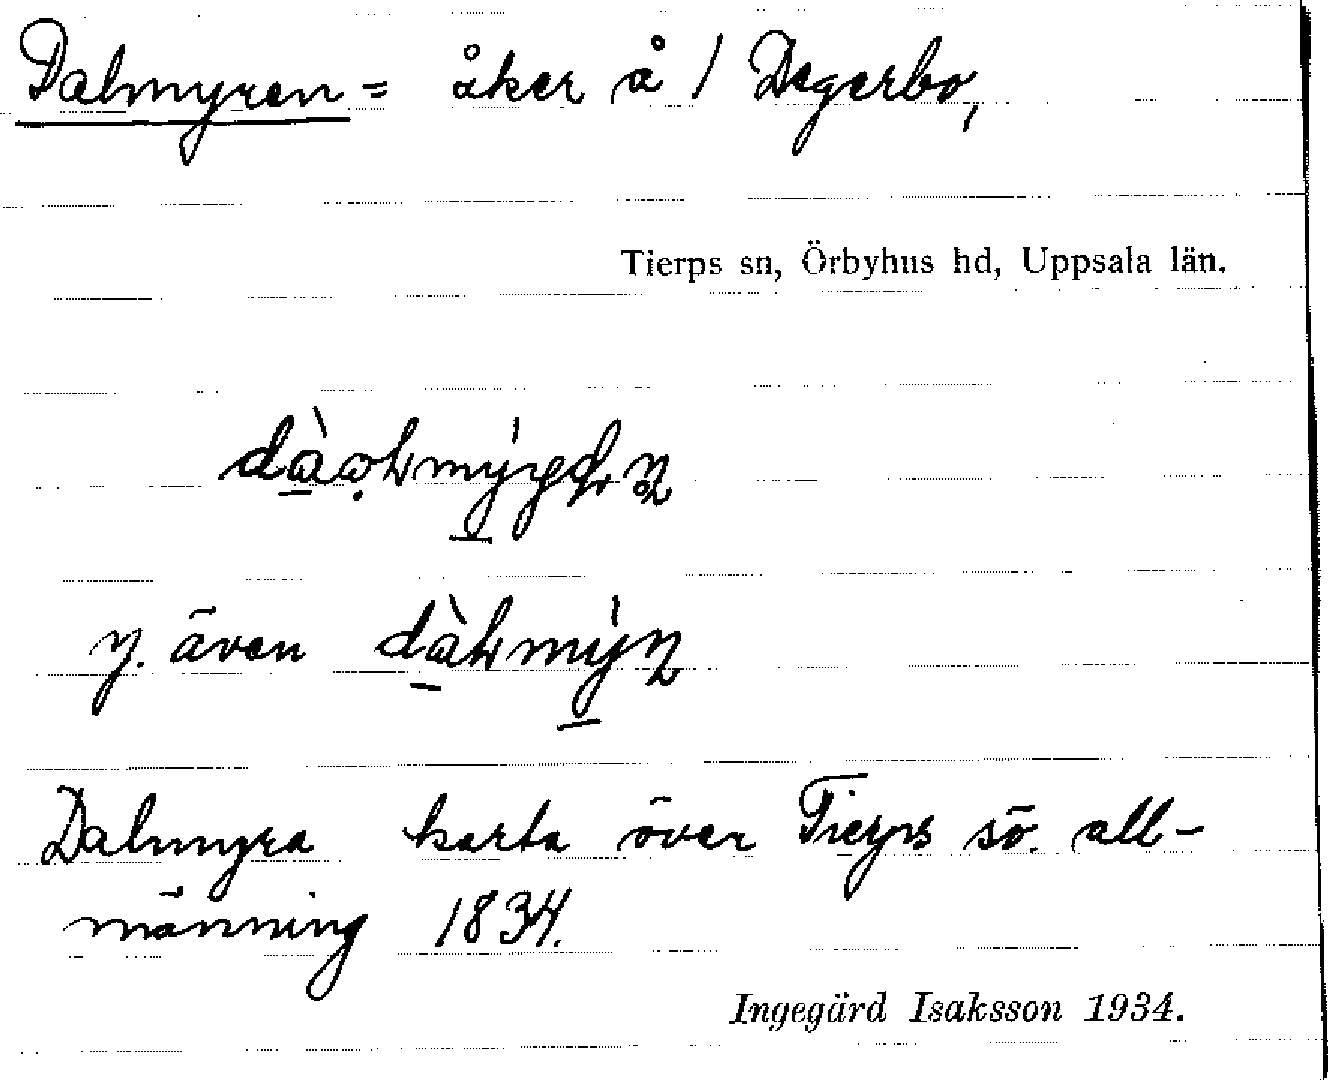 Dalmyren = åker å / Degerbo,
Tierps sn, Örbyhus hd, Uppsala län.
y. även
Dalmyra karta över Tierps sö. all-
männing 1834.
Ingegärd Isaksson 1934.